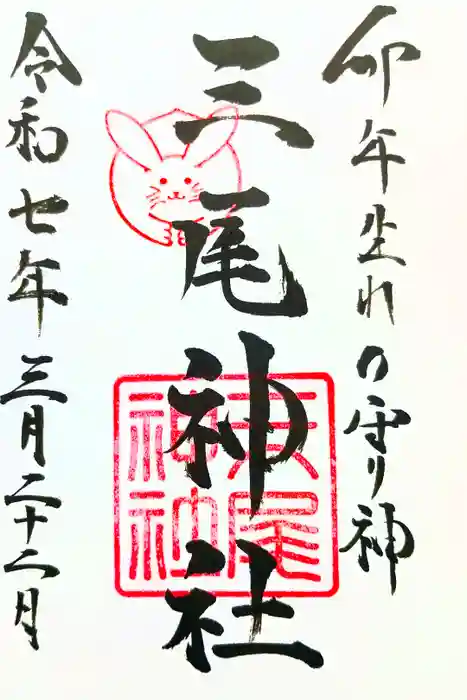 卯年生れの守り神
三尾神社
三尾神社
令和七年三月二十二日